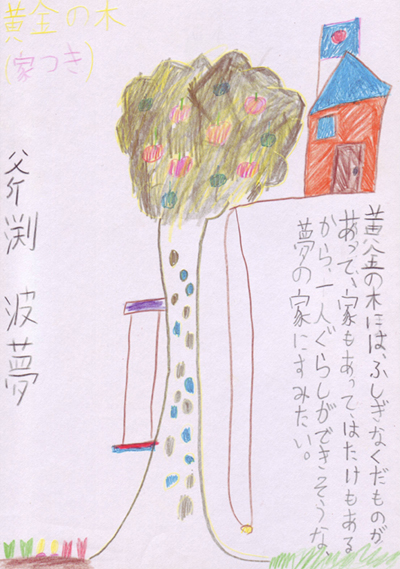 黄金の木
(家つき)
黄金の木には、ふしぎなくだものが
あって、家もあって、はたけもある
から、一人ぐらしができそうな、
夢の家にすみたい。
斧渕 波夢